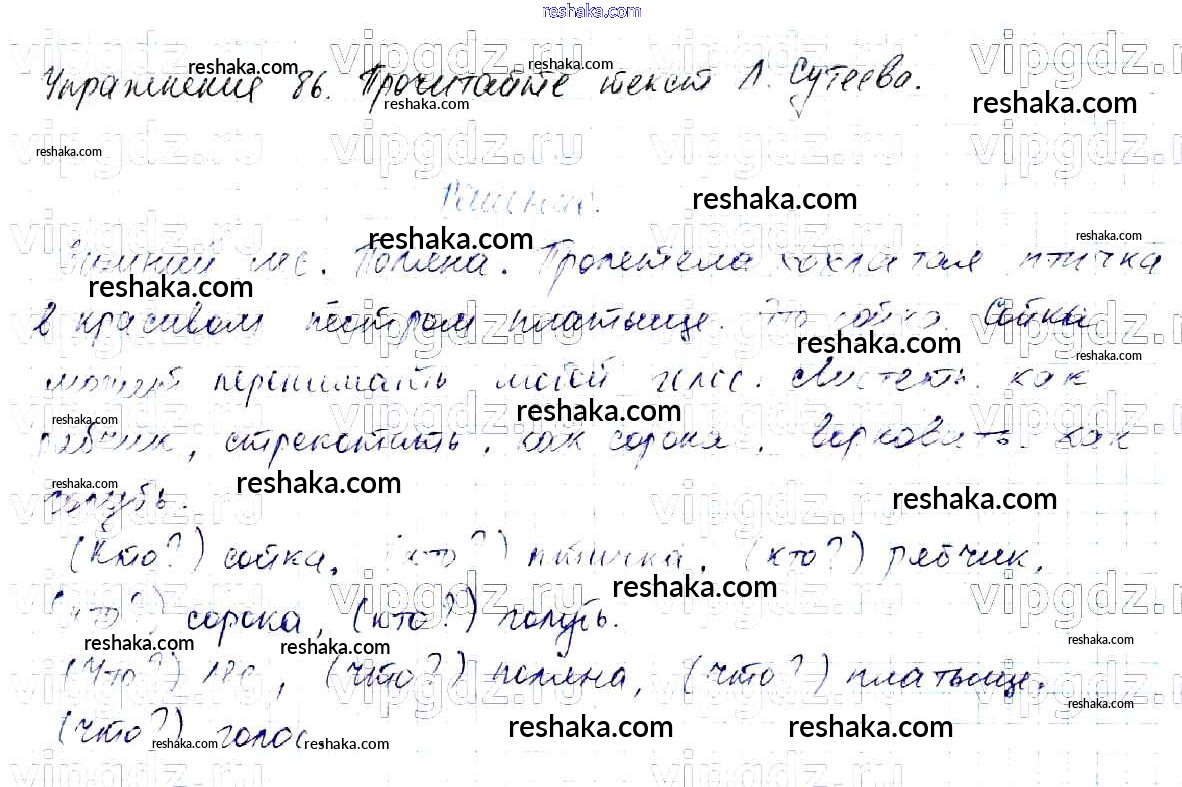 reshaka.com
Упражнение 86. Прочитайте текст Л. Сутеева.
Решение.
Зимний лес. Поляна. Пролетела хохлатая птичка
в красивом пёстром платьице. Это сойка. Сойка
может перенимать любой голос. Свистеть, как
рябчик, стрекотать, как сорока, ворковать как
голубь.
(Кто?) сойка, (кто?) птичка, (кто?) рябчик,
(кто?) сорока, (кто?) голубь.
(Что?) лес, (что?) поляна, (что?) платьице,
(что?) голос.